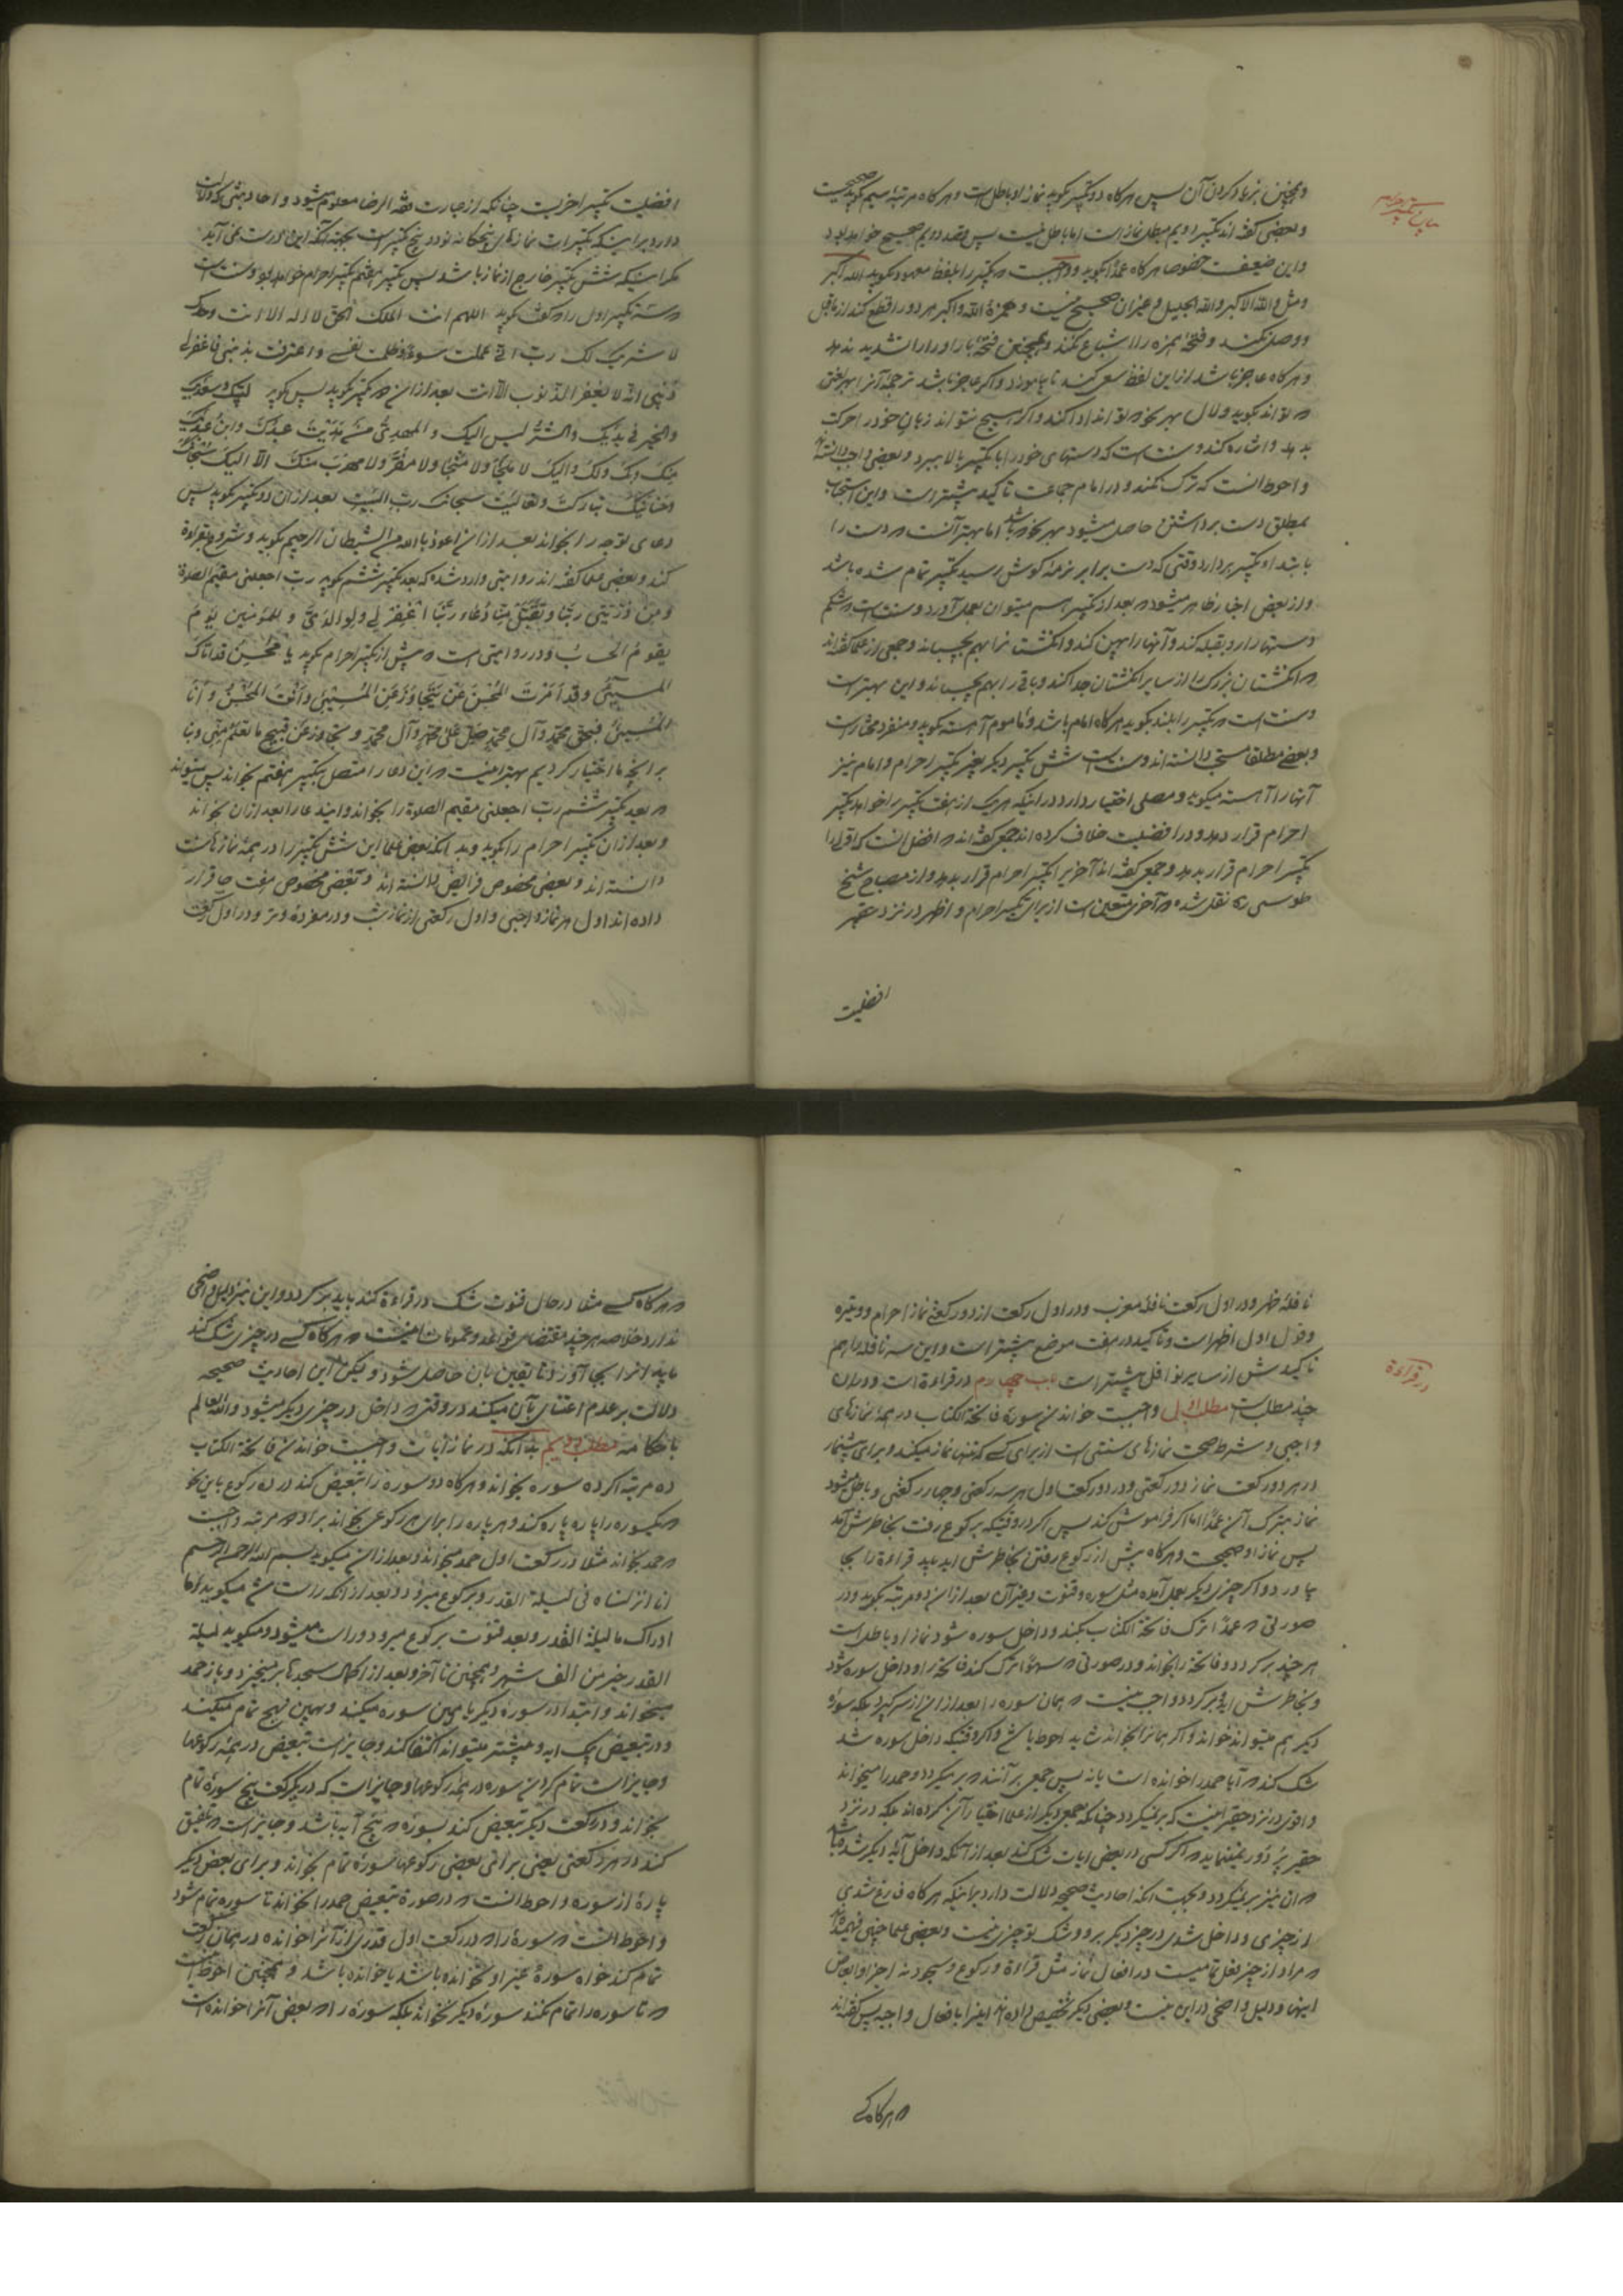 و همچنین بزیاد کردن آن پس هرکاه دو تکبیر بکوید نماز او باطلست و هرکاه مرتبهٔ سیم بکوید صحیحست
و بعضی کفته اند تکبیر دویم مبطل نماز است اما باطل نیست پس وقصد دویم صحیح خواهد بود
و این ضعیفست خصوصا هرکاه عمدا بکوید و واجبست که تکبیر را بلفظ معهود بکوید الله اکبر
و مثل والله الاکبر والله الجلیل و غیر آن صحیح نیست و همزهٔ الله و اکبر هر دو را قطع کند از ماقبل
و وصل نکند و فتحهٔ همزه را اشباع نکند و همچنین فتحهٔ باء را و را را تشدید ندهد
و هرکاه عاجز باشد از این لفظ سعی کند تا بیاموزد و اکر عاجز باشد ترجمهٔ آنرا بهر لغتی
که تواند بکوید و لال بهر نحو که تواند ادا کند و اکر هیچ نتواند زبان خود را حرکت
بدهد و اشاره کند و سنت است که دستهای خود را با تکبیر بالا ببرد و بعضی واجب دانسته اند
و احوط انست که ترک نکند و در امام جماعت تاکید بیشتر است و این استحباب
بمطلق دست برداشتن حاصل میشود بهر نحو که باشد اما بهتر آنست که دست را
با ابتداء تکبیر بردارد وقتی که دست برابر نرمهٔ کوش رسید تکبیر تمام شده باشد
و از بعضی اخبار ظاهر میشود که بعد از تکبیر هم میتوان بعمل آورد و سنت است که شکم
دستها را رو بقبله کند و آنها را پهن کند و انکشتانرا بهم بچسباند و جمعی از علما کفته اند
که انکشتان بزرک را از سایر انکشتان جدا کند و باقی را بهم بچسباند و این بهتر است
و سنت است که تکبیر را بلند بکوید هرکاه امام باشد و ماموم آهسته بکوید و منفرد مختار است
و بعضی مطلقا مستحب دانسته اند و سنت است شش تکبیر دیکر بغیر تکبیر احرام و امام نیز
آنها را آهسته میکوید و مصلی اختیار دارد در اینکه هریک از هفت تکبیر را خواهد تکبیر
احرام قرار دهد و در افضلیت خلاف کرده اند جمعی کفته اند که افضل انست که اول را
تکبیر احرام قرار بدهد و جمعی کفته اند آخر را تکبیر احرام قرار بدهد و از مصباح شیخ
طوسی ره نقل شده که آخری متعین است از برای تکبیر احرام و اظهر در نزد حقیر
افضلیت
افضلیت تکبیر اخر است چنانکه از عبارت فقه الرضا معلوم میشود و احادیثی که دلالت
دارد بر اینکه تکبیرات نمازهای پنجکانه نود و پنج تکبیر است بجهة آنکه این درست نمی آید
مکر اینکه شش تکبیر خارج از نماز باشد پس تکبیر هفتم تکبیر احرام خواهد بود و سنت است
که سه تکبیر اول را که کفت بکوید اللهم انت الملک الحق لا اله الا انت وحدک
لا شریک لک رب انی عملت سوءً و ظلمت نفسی و اعترفت بذنبی فاغفرلی
ذنبی انه لا یغفر الذنوب الا انت بعد از آن دو تکبیر بکوید پس کوید لبیک و سعدیک
والخیر فی یدیک والشر لیس الیک والمهدی من هدیت عبدک وابن عبدیک
منک وبک ولک والیک لا ملجأ ولا منجا ولا مفر ولا مهرب منک الا الیک سبحانک
وحنانیک تبارکت وتعالیت سبحانک رب البیت بعد از آن دو تکبیر بکوید پس
دعای توجه را بخواند بعد از آن اعوذ بالله من الشیطان الرجیم بکوید و شروع بقراءة
کند و بعضی علما کفته اند روایتی وارد شده که بعد تکبیر ششم بکوید رب اجعلنی مقیم الصلوة
ومن ذریتی ربنا وتقبل منا دعاء ربنا اغفرلی ولوالدی وللمؤمنین یوم
یقوم الحساب و در روایتی است که پیش از تکبیر احرام بکوید یا محسن قد اتاک
المسیئ وقد امرت المحسن عن یتجاوز عن المسیئ وانت المحسن وانا
المسیئ فبحق محمد وآل محمد صل علی محمد وآل محمد وتجاوز عن قبیح ما تعلم منی وبنا
بر انچه ما اختیار کردیم بهتر اینست که این دعا را متصل بتکبیر هفتم بخواند پس میتواند
که بعد تکبیر ششم رب اجعلنی مقیم الصلوة را بخواند و ایندعا را بعد از آن بخواند
و بعد از آن تکبیر احرام را بکوید و بدانکه بعضی علما این شش تکبیر را در همهٔ نمازها سنت
دانسته اند و بعضی مخصوص فرایض دانسته اند و بعضی مخصوص هفت جا قرار
داده اند اول هر نماز واجبی و اول رکعتی از نماز شب و در مفردهٔ وتر و در اول رکعت
بیان تکبیرة الاحرام
نافلهٔ ظهر و در اول رکعت نافلهٔ مغرب و در اول رکعت از دو رکعتی نماز احرام و وتیره
و قول اول اظهر است و تاکید در هفت موضع بیشتر است و این سه نافله را هم
تاکیدش از سایر نوافل بیشتر است باب چهارم در قراءة است و در ان
چند مطلب است مطلب اول واجبست خواندن سورهٔ فاتحة الکتاب در همهٔ نمازهای
واجبی و شرط صحت نمازهای سنتی است از برای کسی که تنها نماز میکند و برای پیشنماز
در هر دو رکعت نماز دو رکعتی و در دو رکعت اول هر سه رکعتی و چهار رکعتی و باطل میشود
نماز بترک آن عمدا اما اکر فراموش کند پس اکر در وقتیکه برکوع رفت بخاطرش آمد
پس نماز او صحیحست و هرکاه پیش از رکوع رفتن بخاطرش اید باید قراءة را بجا
بیاورد و اکر چیزی دیکر بعمل آمده مثل سوره و قنوت و غیر آن بعد از آن دو مرتبه بکوید و در
صورتی که عمدا ترک فاتحة الکتاب بکند و داخل سوره شود نماز او باطل است
هرچند برکردد و فاتحه را بخواند و در صورتی که سهوا ترک کند فاتحه را و داخل سوره شود
و بخاطرش اید برکردد و واجب نیست که همان سوره را بعد از آن از سر کیرد بلکه سورهٔ
دیکر هم میتواند خواند و اکر همانرا بخواند شاید احوط باشد و اکر وقتیکه داخل سوره شد
شک کند که آیا حمد را خوانده است یا نه پس جمعی بر آنند که برمیکردد و حمد را میخواند
و اقوی در نزد حقیر اینست که برنمیکردد چنانکه جمعی دیکر از علما اختیار آن کرده اند بلکه در نزد
حقیر پر دور نمینماید که اکر کسی در بعض ایات شک کند بعد از آنکه داخل آیهٔ دیکر شده باشد
که ان نیز برنمیکردد و بجهت انکه احادیث صحیحه دلالت دارد بر اینکه هرکاه فارغ شدی
از چیزی و داخل شدی در چیز دیکر برو و شک تو چیزی نیست و بعضی علما چنین فهمیده اند
که مراد از چیز فعل تمامیست در افعال نماز مثل قراءة و رکوع و سجود نه اجزاء و ابعاض
اینها و دلیل واضحی در این نیست و بعضی دیکر تخصیص داده اند اینرا بافعال واجبه پس کفته اند
که هرکاه کسی
در قراءة
که هرکاه کسی مثلا در حال قنوت شک در قراءة کند باید برکردد و این نیز دلیل واضحی
ندارد و خلاصه هرچند مقتضای قواعد و عمومات اینست که هرکاه کسی در چیزی شک کند
باید انرا بجا آورد تا یقین بان حاصل شود ولیکن این احادیث صحیحه
دلالت بر عدم اعتنای بآن میکند در وقتی که داخل در چیزی دیکر میشود والله العالم
باحکامه مطلب دویم بدانکه در نماز آیات واجبست خواندن فاتحة الکتاب
ده مرتبه اکر ده سوره بخواند و هرکاه دو سوره را تبعیض کند در ده رکوع باین نحو
که یکسوره را پاره پاره کند و هر پاره را برای هر رکوعی بخواند براو دو مرتبه واجبست
که حمد بخواند مثلا در رکعت اول حمد میخواند و بعد از آن میکوید بسم الله الرحمن الرحیم
انا انزلناه فی لیلة القدر و برکوع میرود و بعد از آنکه راست شد میکوید وما
ادراک ما لیلة القدر و بعد قنوت برکوع میرود و راست میشود و میکوید لیلة
القدر خیر من الف شهر و همچنین تا آخر و بعد از اکمال سجدتها برمیخیزد و باز حمد
میخواند و ابتدا در سورهٔ دیکر یا همین سوره میکند و بهمین نهج تمام میکند
و در تبعیض بیک ایه و بیشتر میتواند اکتفا کند و جایز است تبعیض در همهٔ رکوعها
و جایز است تمام کردن سوره در همهٔ رکوعها و جایز است که در یکرکعت پنج سورهٔ تمام
بخواند و در رکعت دیکر تبعیض کند بسورهٔ که پنج آیه باشد و جایز است که تلفیق
کند در هر رکعتی یعنی برای بعضی رکوعها سورهٔ تمام بخواند و برای بعض دیکر
پارهٔ از سوره و احوط انست که در صورة تبعیض حمد را بخواند تا سوره تمام شود
و احوط انست که سورهٔ را که در رکعت اول قدری از آنرا خوانده در همان رکعت
تمام کند خواه سورهٔ غیر او نخوانده باشد یا خوانده باشد و همچنین احوط اینست
که تا سوره را تمام نکند سورهٔ دیکر نخواند بلکه سورهٔ را که بعض آنرا خوانده است